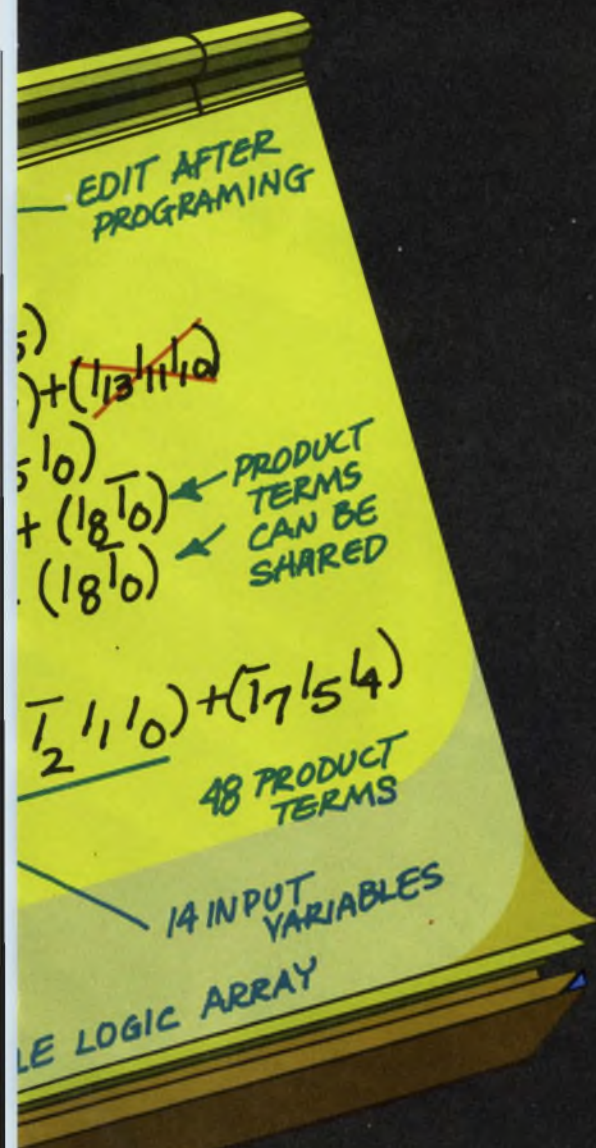 EDIT AFTER
PROGRAMING
5)
)+(I13 I11 I10)
5 I0)
+ (I8 Ī0)
PRODUCT
TERMS
CAN BE
SHARED
(I8 Ī0)
Ī2 I1 I0)+(Ī7 I5 I4)
48 PRODUCT
TERMS
14 INPUT
VARIABLES
LE LOGIC ARRAY